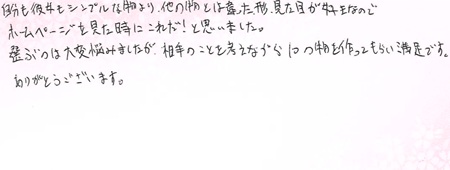 自分も彼女もシンプルな物より、他の物とは違った形、見た目が好きなので
ホームページを見た時にこれだ！と思いました。
選ぶのは大変悩みましたが、相手のことを考えながら1つの物を作ってもらい満足です。
ありがとうございます。